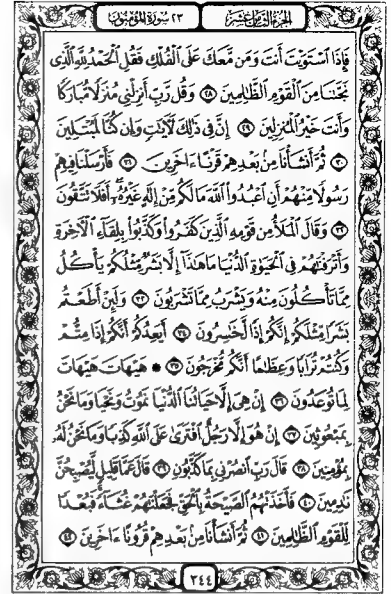 الجزء الثامن عشر
٢٣ سورة المؤمنون
فَإِذَا ٱسْتَوَيْتَ أَنتَ وَمَن مَّعَكَ عَلَى ٱلْفُلْكِ فَقُلِ ٱلْحَمْدُ لِلَّهِ ٱلَّذِى
نَجَّىٰنَا مِنَ ٱلْقَوْمِ ٱلظَّٰلِمِينَ ٢٨ وَقُل رَّبِّ أَنزِلْنِى مُنزَلًا مُّبَارَكًا
وَأَنتَ خَيْرُ ٱلْمُنزِلِينَ ٢٩ إِنَّ فِى ذَٰلِكَ لَءَايَٰتٍ وَإِن كُنَّا لَمُبْتَلِينَ
٣٠ ثُمَّ أَنشَأْنَا مِنۢ بَعْدِهِمْ قَرْنًا ءَاخَرِينَ ٣١ فَأَرْسَلْنَا فِيهِمْ
رَسُولًا مِّنْهُمْ أَنِ ٱعْبُدُوا۟ ٱللَّهَ مَا لَكُم مِّنْ إِلَٰهٍ غَيْرُهُۥٓ أَفَلَا تَتَّقُونَ
٣٢ وَقَالَ ٱلْمَلَأُ مِن قَوْمِهِ ٱلَّذِينَ كَفَرُوا۟ وَكَذَّبُوا۟ بِلِقَآءِ ٱلْءَاخِرَةِ
وَأَتْرَفْنَٰهُمْ فِى ٱلْحَيَوٰةِ ٱلدُّنْيَا مَا هَٰذَآ إِلَّا بَشَرٌ مِّثْلُكُمْ يَأْكُلُ
مِمَّا تَأْكُلُونَ مِنْهُ وَيَشْرَبُ مِمَّا تَشْرَبُونَ ٣٣ وَلَئِنْ أَطَعْتُم
بَشَرًا مِّثْلَكُمْ إِنَّكُمْ إِذًا لَّخَٰسِرُونَ ٣٤ أَيَعِدُكُمْ أَنَّكُمْ إِذَا مِتُّمْ
وَكُنتُمْ تُرَابًا وَعِظَٰمًا أَنَّكُم مُّخْرَجُونَ ٣٥ ۞ هَيْهَاتَ هَيْهَاتَ
لِمَا تُوعَدُونَ ٣٦ إِنْ هِىَ إِلَّا حَيَاتُنَا ٱلدُّنْيَا نَمُوتُ وَنَحْيَا وَمَا نَحْنُ
بِمَبْعُوثِينَ ٣٧ إِنْ هُوَ إِلَّا رَجُلٌ ٱفْتَرَىٰ عَلَى ٱللَّهِ كَذِبًا وَمَا نَحْنُ لَهُۥ
بِمُؤْمِنِينَ ٣٨ قَالَ رَبِّ ٱنصُرْنِى بِمَا كَذَّبُونِ ٣٩ قَالَ عَمَّا قَلِيلٍ لَّيُصْبِحُنَّ
نَٰدِمِينَ ٤٠ فَأَخَذَتْهُمُ ٱلصَّيْحَةُ بِٱلْحَقِّ فَجَعَلْنَٰهُمْ غُثَآءً فَبُعْدًا
لِّلْقَوْمِ ٱلظَّٰلِمِينَ ٤١ ثُمَّ أَنشَأْنَا مِنۢ بَعْدِهِمْ قُرُونًا ءَاخَرِينَ ٤٢
٣٤٤